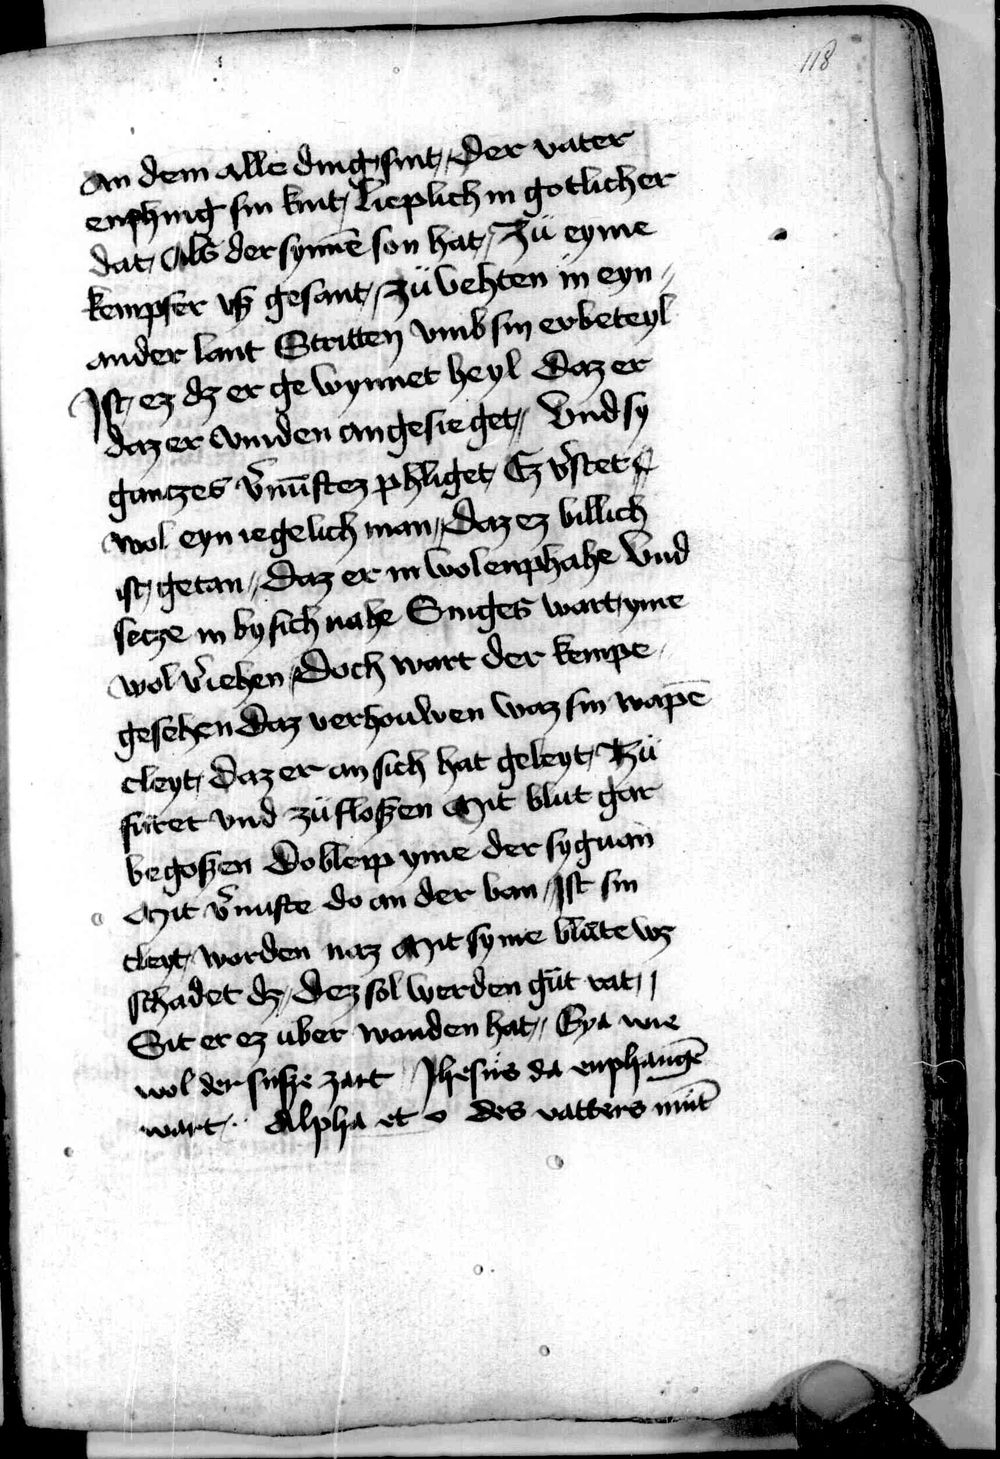 118
An dem alle ding sint, Der vater
enphing sin kint, Lieplich in gotlicher
dat, Als der synne son hat, Zü eyme
kempfer vß gesant, zü vehten in eyn
ander lant Stritten vmb sin erbeteyl
Ist, ez dz er gewynnet heyl Daz er
daz er vinden angesieget, Vnd sy
gantzes v̄nūftez phliget, Ez v̄stet
wol eyn iegelich man, Daz ez billich
ist, getan, Daz er in wol enphahe Vnd
setze in by sich nahe Siniges wart, yme
wol v̄iehen, Doch wart der kempe
gesehen Daz verhouwen waz sin wapē
cleyt, Daz er an sich hat geleyt, Zü
füret vnd züfloßen Mit blut gar
begoßen Do bleip yme der sygvan
Mit v̄nufte do an der ban, Ist sin
cleyt, worden naz Mit syme blüte wz
schadet dz, Dez sol werden güt rat,
Sit er ez uber wonden hat, Eya wie
wol der süsze zart Jhesus da enphangē
wart, Alpha et o des vatters mīt